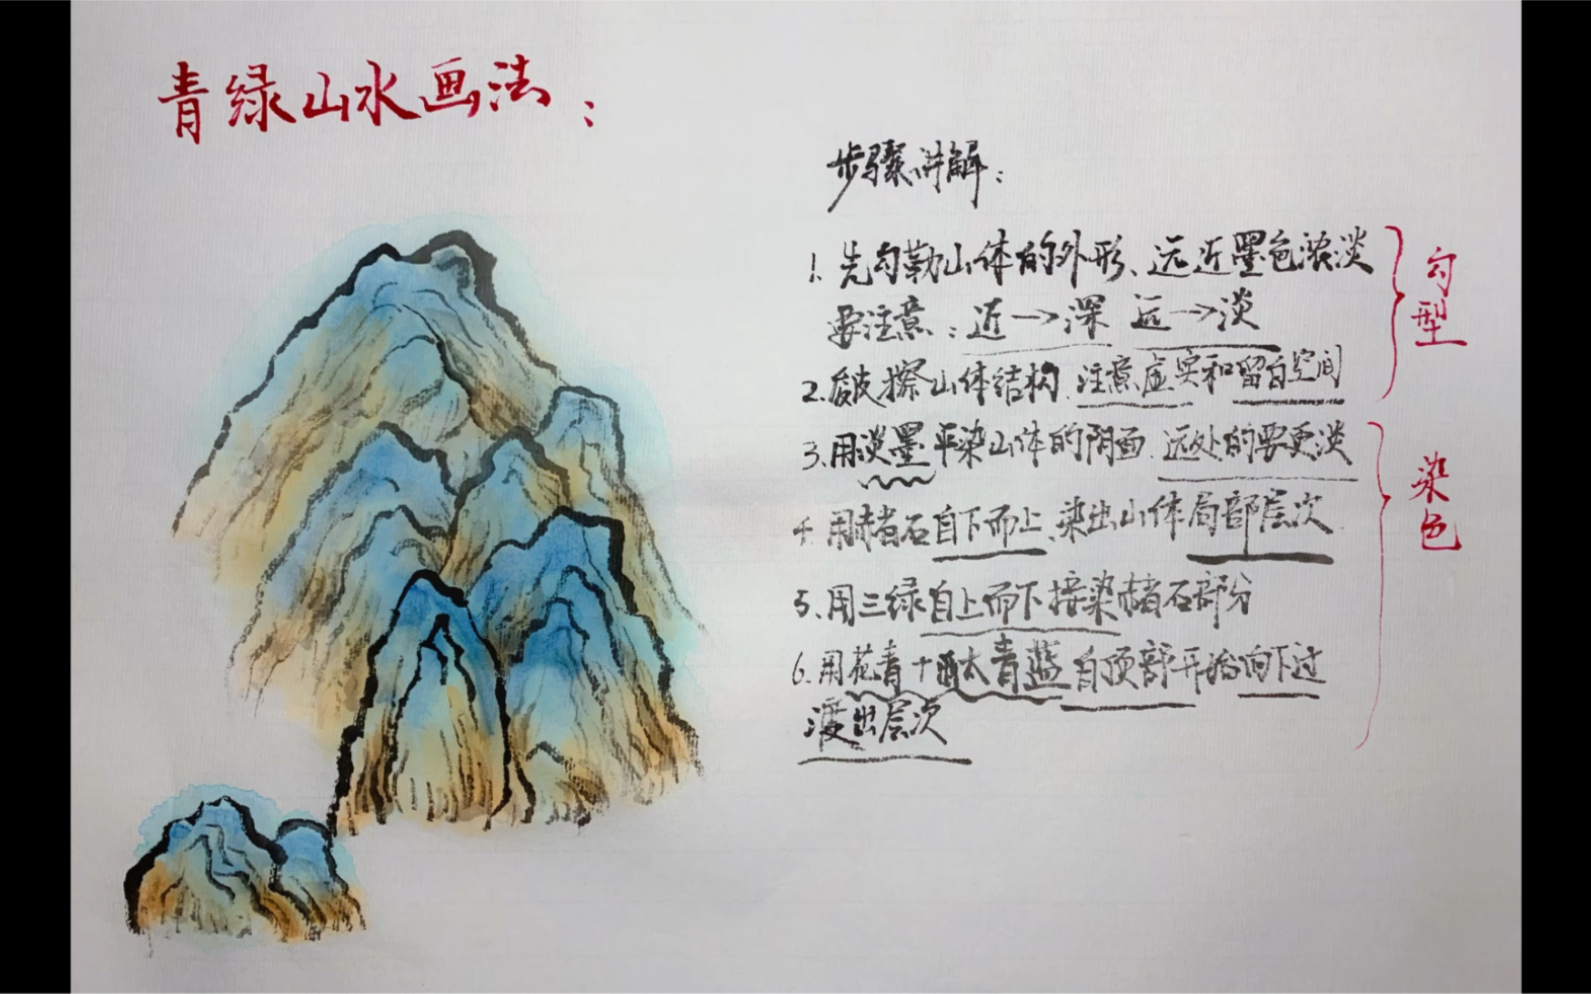 青绿山水画法：
步骤讲解：
1.先勾勒山体的外形、远近墨色浓淡
要注意：近→深 远→淡
2.皴擦山体结构.注意虚实和留白空间
3.用淡墨平染山体的阴面.远处的要更淡
4.用赭石自下而上、染出山体局部层次
5、用三绿自上而下接染赭石部分
6.用花青+酞青蓝自顶部开始向下过
渡出层次
勾型
染色